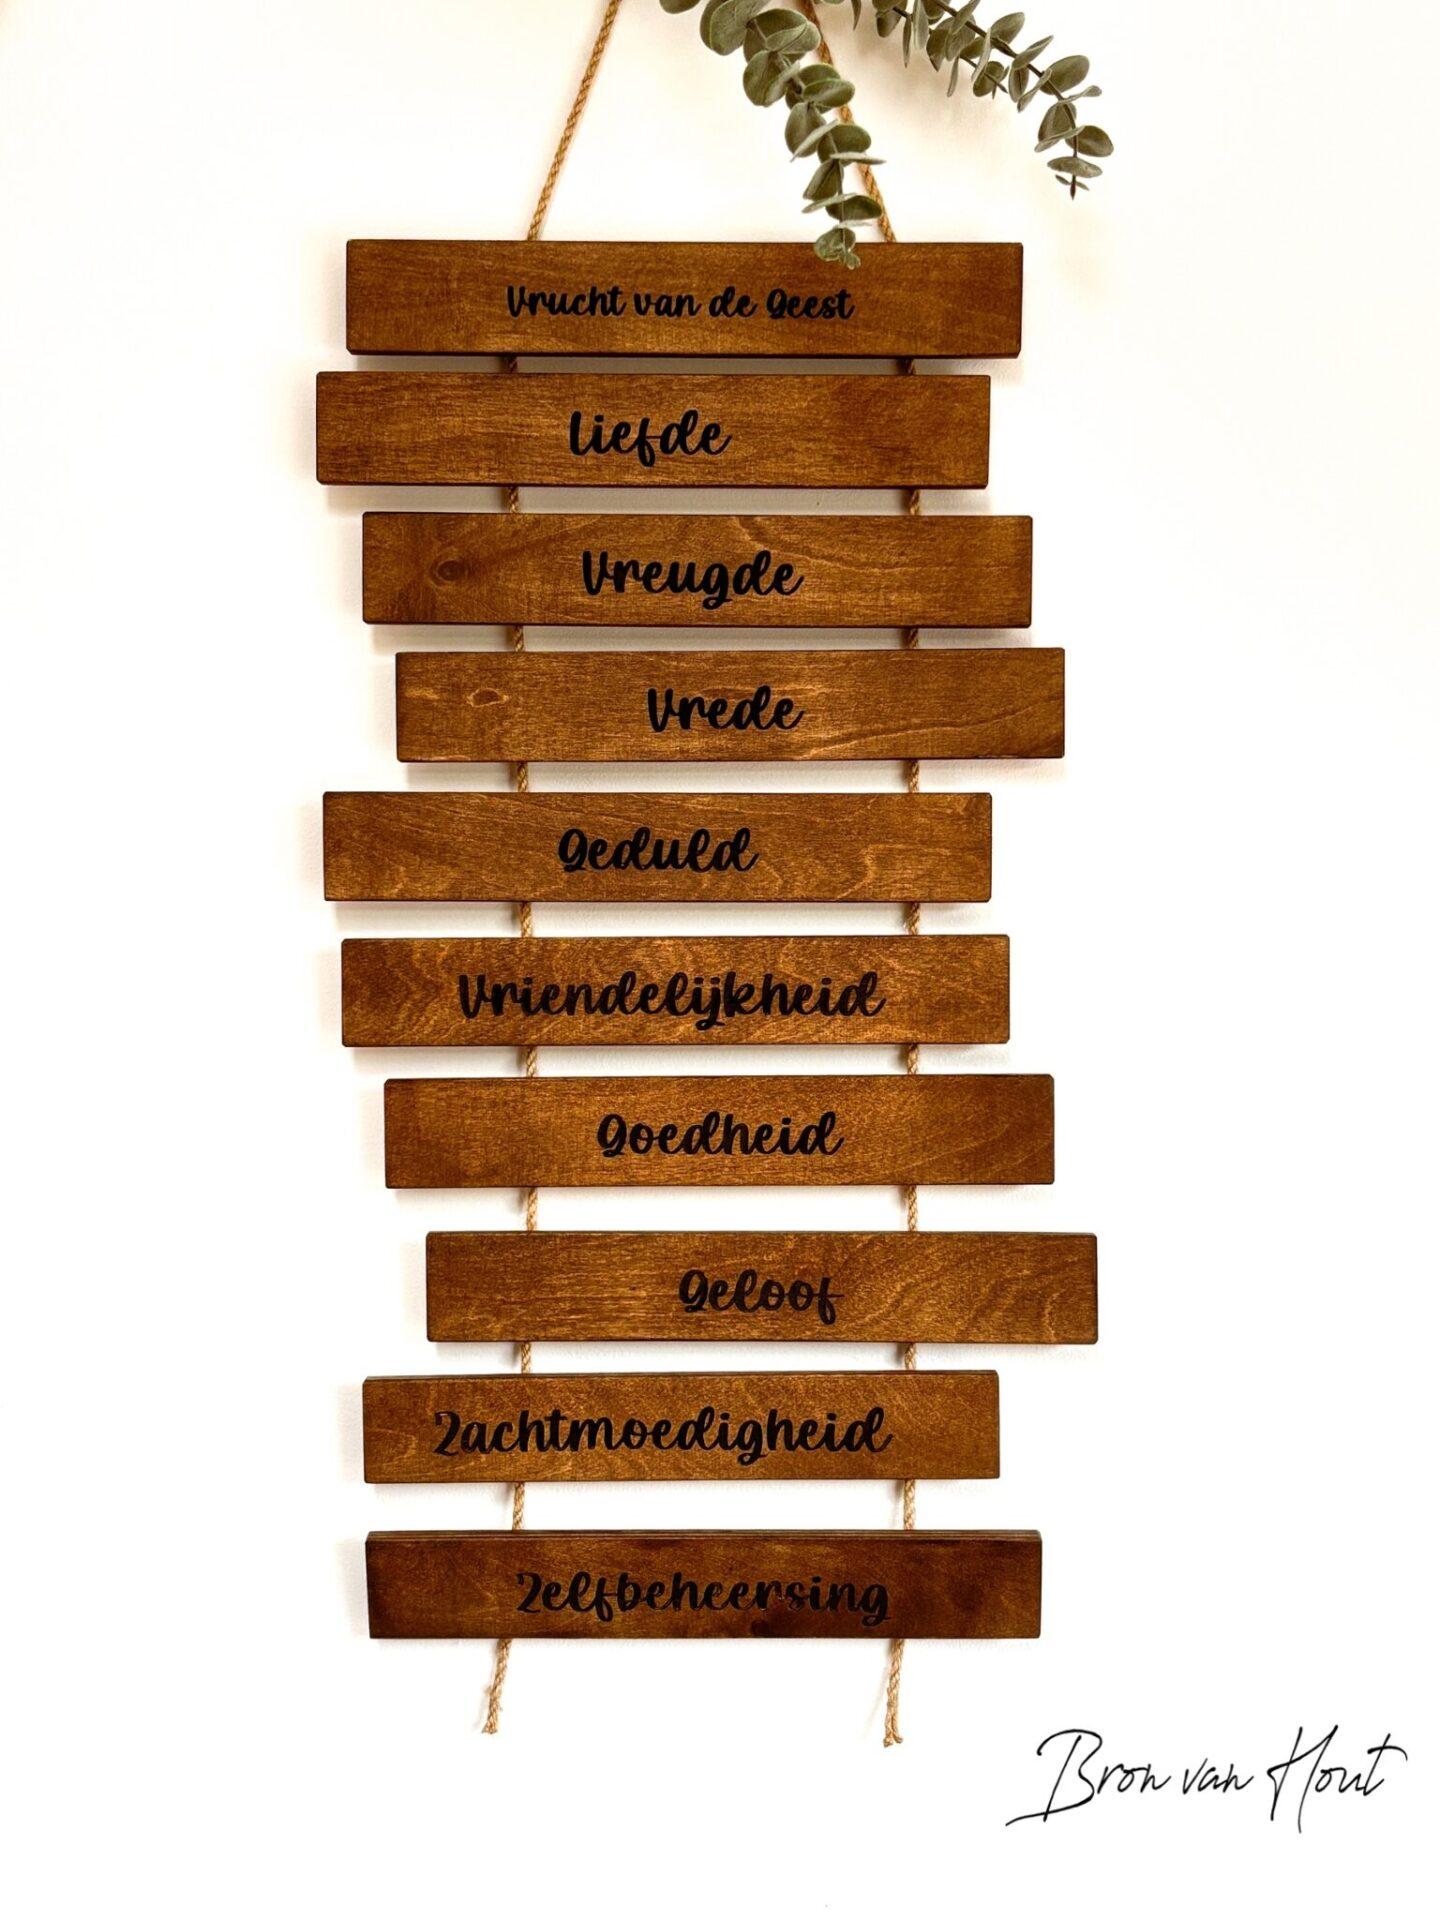 Vrucht van de Geest
Liefde
Vreugde
Vrede
Geduld
Vriendelijkheid
Goedheid
Geloof
Zachtmoedigheid
Zelfbeheersing
Bron van Hout